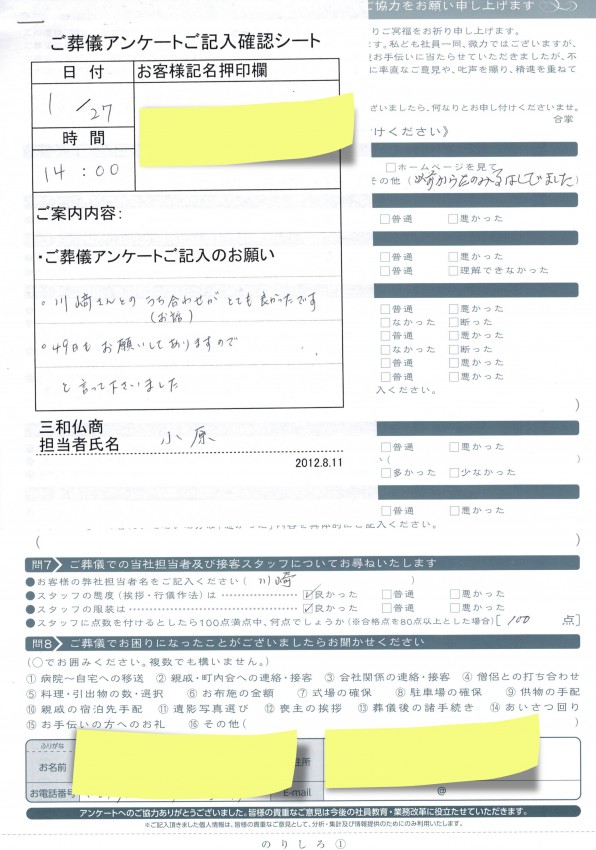 ご協力をお願い申し上げます
ご葬儀アンケートご記入確認シート
日付
お客様記名押印欄
1/27
時間
14:00
ご案内内容:
・ご葬儀アンケートご記入のお願い
。川崎さんとのうち合わせがとても良かったです
(お話)
。49日もお願いしてありますので
と言って下さいました
三和仏商
担当者氏名 小原
2012.8.11
りご冥福をお祈り申し上げます。
す。私ども社員一同、微力ではございますが、
お手伝いに当たらせていただきましたが、不
に率直なご意見や、叱声を賜り、精進を重ねて
ざいましたら、何なりとお申し付けくださいませ。
合掌
けください》
□ホームページを見て
その他(以前からたのみるはしでました)
□普通 □悪かった
□普通 □悪かった
□普通 □理解できなかった
□普通 □悪かった
□なかった □断った
□普通 □悪かった
□なかった □断った
□普通 □悪かった
□普通 □悪かった
入ください。
)
□普通 □悪かった
( )
□多かった □少なかった
□普通 □悪かった
ご記入ください。
( )
問7 ご葬儀での当社担当者及び接客スタッフについてお尋ねいたします
●お客様の弊社担当者名をご記入ください( 川崎 )
●スタッフの態度(挨拶・行儀作法)は ☑良かった □普通 □悪かった
●スタッフの服装は ☑良かった □普通 □悪かった
●スタッフに点数を付けるとしたら100点満点中、何点でしょうか(※合格点を80点以上とした場合)[ 100 点]
問8 ご葬儀でお困りになったことがございましたらお聞かせください
(○でお囲みください。複数でも構いません。)
①病院〜自宅への移送 ②親戚・町内会への連絡・接客 ③会社関係の連絡・接客 ④僧侶との打ち合わせ
⑤料理・引出物の数・選択 ⑥お布施の金額 ⑦式場の確保 ⑧駐車場の確保 ⑨供物の手配
⑩親戚の宿泊先手配 ⑪遺影写真選び ⑫喪主の挨拶 ⑬葬儀後の諸手続き ⑭あいさつ回り
⑮お手伝いの方へのお礼 ⑯その他( )
ふりがな
お名前
住所
お電話番号
E-mail @
アンケートへのご協力ありがとうございました。皆様の貴重なご意見は今後の社員教育・業務改革に役立たせていただきます。
※ご記入頂きました個人情報は、皆様の貴重なご意見として、分析・集計及び情報提供のためにのみ利用いたします。
のりしろ①